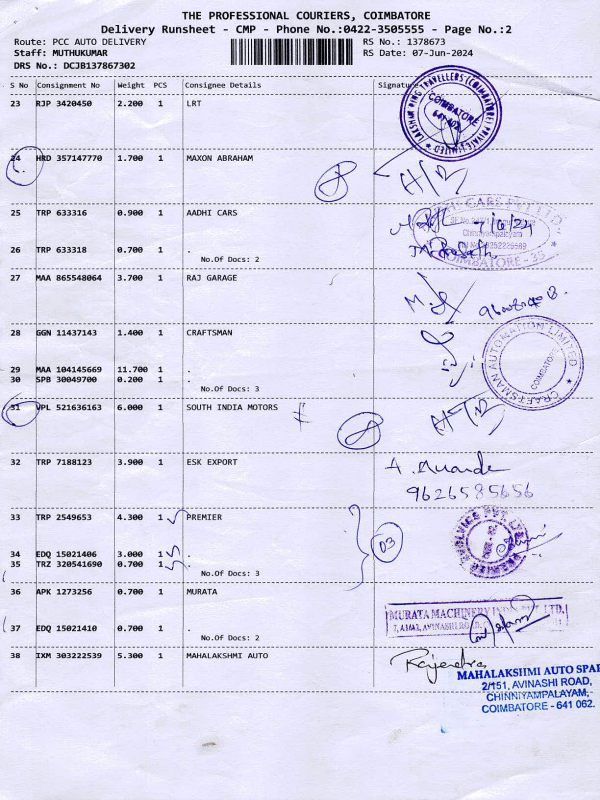 THE PROFESSIONAL COURIERS, COIMBATORE
Delivery Runsheet - CMP - Phone No.:0422-3505555 - Page No.:2
Route: PCC AUTO DELIVERY RS No.: 1378673
Staff: MUTHUKUMAR RS Date: 07-Jun-2024
DRS No.: DCJB137867302
S No Consignment No Weight PCS Consignee Details Signature
23 RJP 3420450 2.200 1 LRT
COIMBATORE
641 402
24 HRD 357147770 1.700 1 MAXON ABRAHAM
25 TRP 633316 0.900 1 AADHI CARS
7/6/24
26 TRP 633318 0.700 1 .
No.Of Docs: 2
COIMBATORE - 35
27 MAA 865548064 3.700 1 RAJ GARAGE
28 GGN 11437143 1.400 1 CRAFTSMAN
CRAFTSMAN AUTOMATION LIMITED
COIMBATORE
29 MAA 104145669 11.700 1 .
30 SPB 30049700 0.200 1 .
No.Of Docs: 3
31 VPL 521636163 6.000 1 SOUTH INDIA MOTORS
32 TRP 7188123 3.900 1 ESK EXPORT
9626585656
33 TRP 2549653 4.300 1 PREMIER
03
34 EDQ 15021406 3.000 1 .
35 TRZ 320541690 0.700 1 .
No.Of Docs: 3
36 APK 1273256 0.700 1 MURATA
MURATA MACHINERY
37 EDQ 15021410 0.700 1 .
No.Of Docs: 2
38 IXM 303222539 5.300 1 MAHALAKSHMI AUTO
Rajendra
MAHALAKSHMI AUTO SPAR
2/151, AVINASHI ROAD,
CHINNIYAMPALAYAM,
COIMBATORE - 641 062.